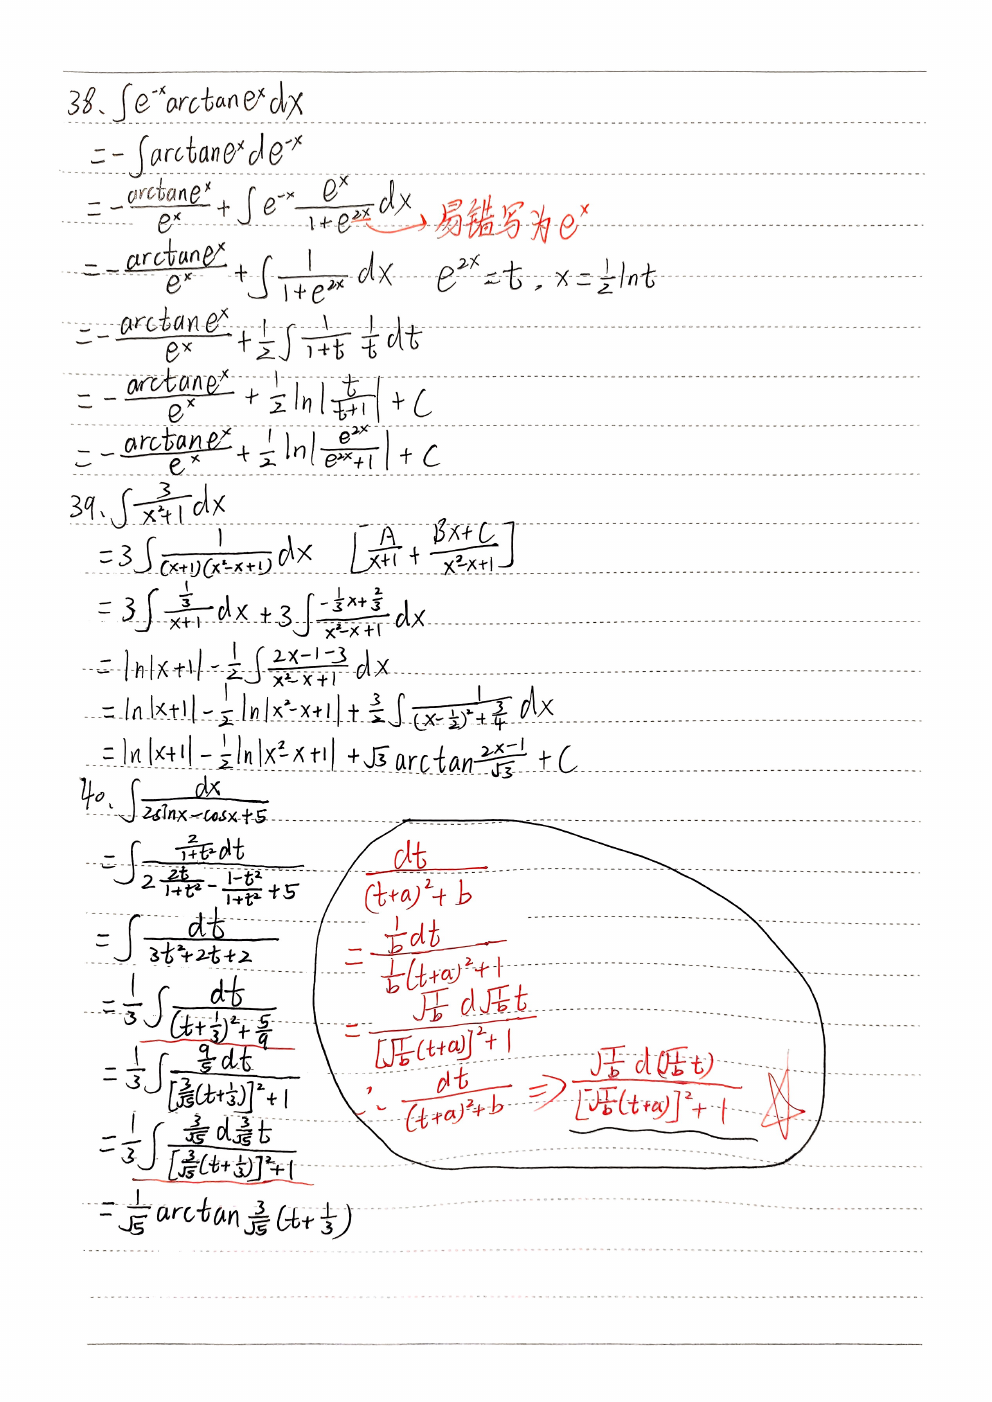 38、∫e^{-x}arctane^x dx
=-∫arctane^x de^{-x}
=-\frac{arctane^x}{e^x}+∫e^{-x}\frac{e^x}{1+e^{2x}}dx → 易错写为e^x
=-\frac{arctane^x}{e^x}+∫\frac{1}{1+e^{2x}}dx e^{2x}=t, x=\frac{1}{2}lnt
=-\frac{arctane^x}{e^x}+\frac{1}{2}∫\frac{1}{1+t}\frac{1}{t}dt
=-\frac{arctane^x}{e^x}+\frac{1}{2}ln|\frac{t}{t+1}|+C
=-\frac{arctane^x}{e^x}+\frac{1}{2}ln|\frac{e^{2x}}{e^{2x}+1}|+C
39、∫\frac{3}{x^2+1}dx
=3∫\frac{1}{(x+1)(x^2-x+1)}dx [\frac{A}{x+1}+\frac{Bx+C}{x^2-x+1}]
=3∫\frac{\frac{1}{3}}{x+1}dx+3∫\frac{-\frac{1}{3}x+\frac{2}{3}}{x^2-x+1}dx
=ln|x+1|-\frac{1}{2}∫\frac{2x-1-3}{x^2-x+1}dx
=ln|x+1|-\frac{1}{2}ln|x^2-x+1|+\frac{3}{2}∫\frac{1}{(x-\frac{1}{2})^2+\frac{3}{4}}dx
=ln|x+1|-\frac{1}{2}ln|x^2-x+1|+√3arctan\frac{2x-1}{√3}+C
40、∫\frac{dx}{2sinx-cosx+5}
=∫\frac{\frac{2}{1+t^2}dt}{2\frac{2t}{1+t^2}-\frac{1-t^2}{1+t^2}+5}
=∫\frac{dt}{3t^2+2t+2}
=\frac{1}{3}∫\frac{dt}{(t+\frac{1}{3})^2+\frac{5}{9}}
=\frac{1}{3}∫\frac{\frac{9}{5}dt}{[\frac{3}{√5}(t+\frac{1}{3})]^2+1}
=\frac{1}{3}∫\frac{\frac{3}{√5}d\frac{3}{√5}t}{[\frac{3}{√5}(t+\frac{1}{3})]^2+1}
=\frac{1}{√5}arctan\frac{3}{√5}(t+\frac{1}{3})
\frac{dt}{(t+a)^2+b}
=\frac{\frac{1}{b}dt}{\frac{1}{b}(t+a)^2+1}
=\frac{√\frac{1}{b}d√\frac{1}{b}t}{[√\frac{1}{b}(t+a)]^2+1}
∴\frac{dt}{(t+a)^2+b}⇒\frac{√\frac{1}{b}d(√\frac{1}{b}t)}{[√\frac{1}{b}(t+a)]^2+1}